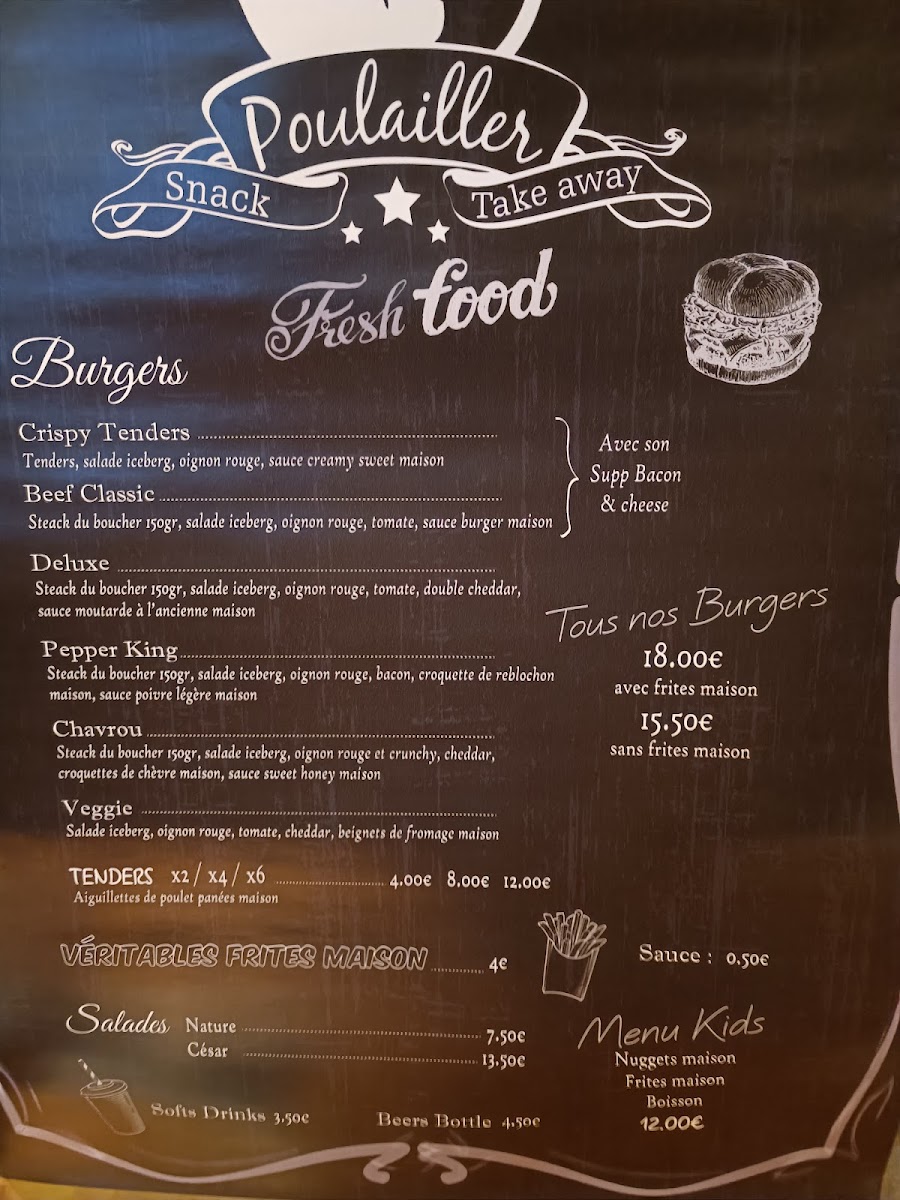 Poulailler
Snack
Take away
Fresh food
Burgers
Crispy Tenders
Tenders, salade iceberg, oignon rouge, sauce creamy sweet maison
Beef Classic
Steack du boucher 150gr, salade iceberg, oignon rouge, tomate, sauce burger maison
Avec son
Supp Bacon
& cheese
Deluxe
Steack du boucher 150gr, salade iceberg, oignon rouge, tomate, double cheddar,
sauce moutarde à l'ancienne maison
Pepper King
Steack du boucher 150gr, salade iceberg, oignon rouge, bacon, croquette de reblochon
maison, sauce poivre légère maison
Chavrou
Steack du boucher 150gr, salade iceberg, oignon rouge et crunchy, cheddar,
croquettes de chèvre maison, sauce sweet honey maison
Veggie
Salade iceberg, oignon rouge, tomate, cheddar, beignets de fromage maison
Tous nos Burgers
18.00€
avec frites maison
15.50€
sans frites maison
TENDERS x2 / x4 / x6 4.00€ 8.00€ 12.00€
Aiguillettes de poulet panées maison
VÉRITABLES FRITES MAISON 4€
Sauce : 0,50€
Salades Nature 7.50€
César 13.50€
Menu Kids
Nuggets maison
Frites maison
Boisson
12.00€
Softs Drinks 3,50€
Beers Bottle 4,50€